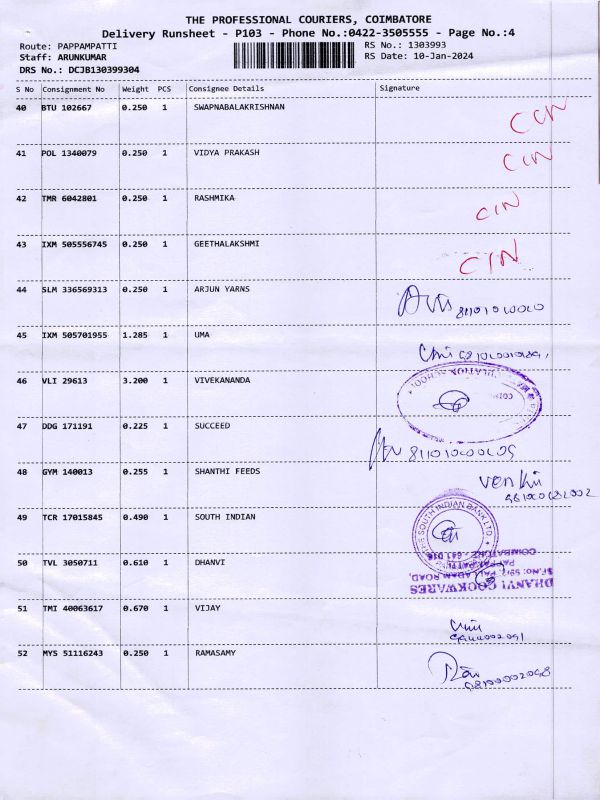 THE PROFESSIONAL COURIERS, COIMBATORE
Delivery Runsheet - P103 - Phone No.:0422-3505555 - Page No.:4
Route: PAPPAMPATTI RS No.: 1303993
Staff: ARUNKUMAR RS Date: 10-Jan-2024
DRS No.: DCJB130399304
S No Consignment No Weight PCS Consignee Details Signature
40 BTU 102667 0.250 1 SWAPNABALAKRISHNAN
41 POL 1340079 0.250 1 VIDYA PRAKASH CIN
42 TMR 6042801 0.250 1 RASHMIKA CIN
43 IXM 505556745 0.250 1 GEETHALAKSHMI CIN
44 SLM 336569313 0.250 1 ARJUN YARNS
45 IXM 505701955 1.285 1 UMA
46 VLI 29613 3.200 1 VIVEKANANDA
47 DDG 171191 0.225 1 SUCCEED
48 GYM 140013 0.255 1 SHANTHI FEEDS
49 TCR 17015845 0.490 1 SOUTH INDIAN
THE SOUTH INDIAN BANK LTD.
50 TVL 3050711 0.610 1 DHANVI
DHANVI COOKWARES
PALLADAM ROAD,
COIMBATORE - 641 016
51 TMI 40063617 0.670 1 VIJAY
52 MYS 51116243 0.250 1 RAMASAMY